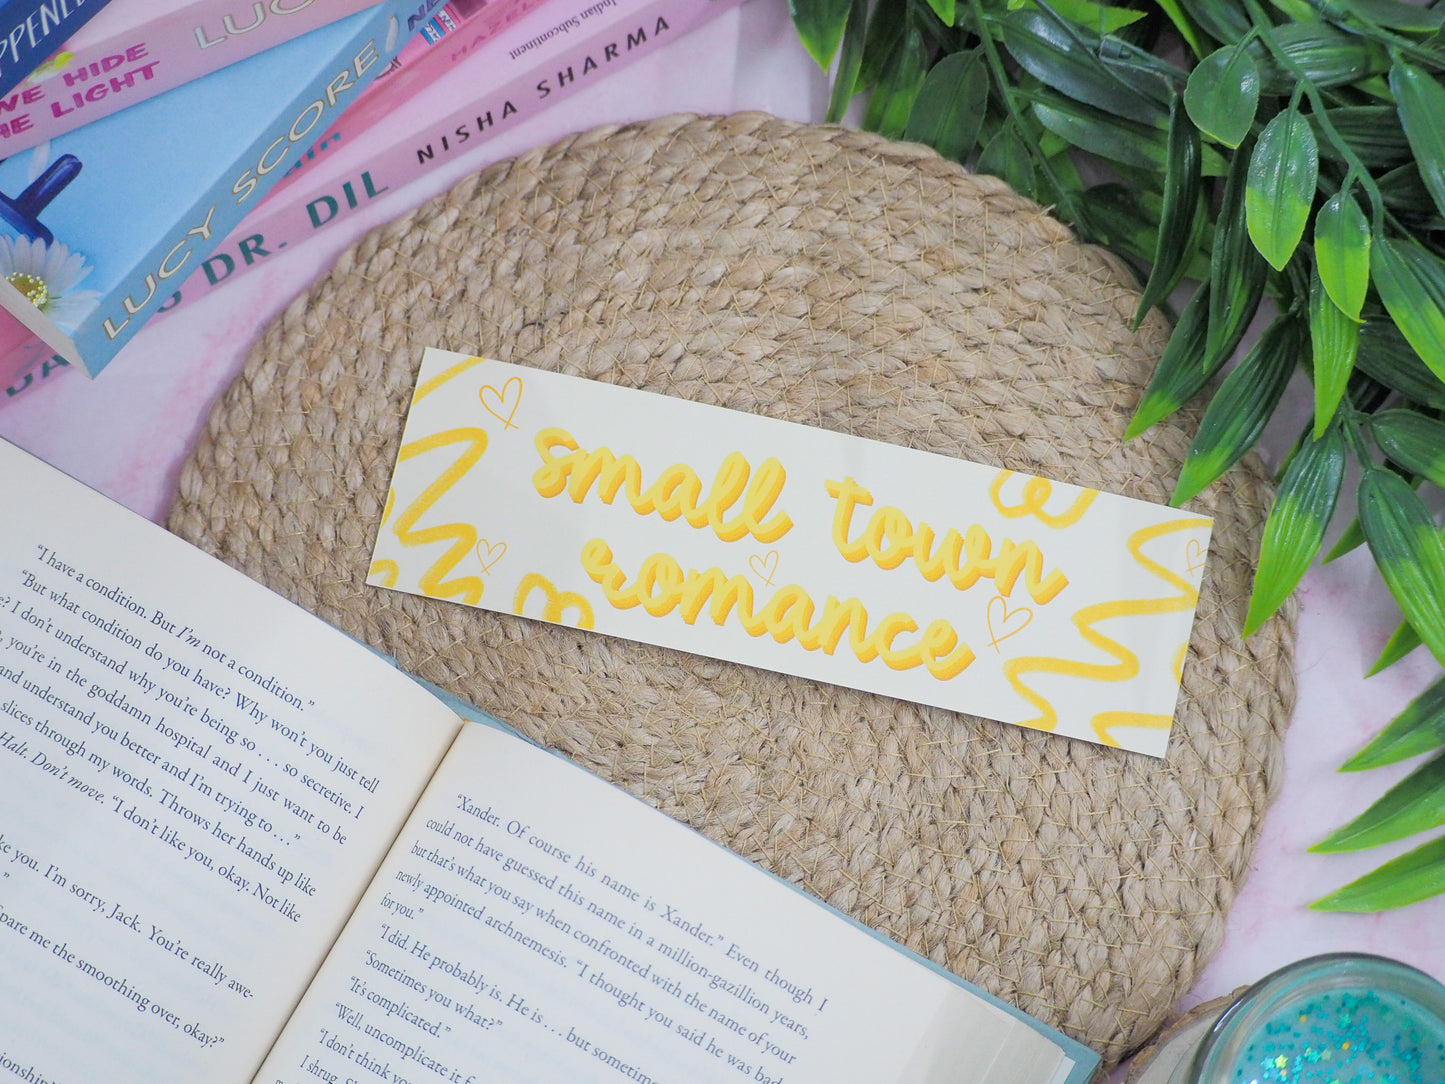 WE HIDE
THE LIGHT
LUCY SCORE
Indian Subcontinent
NISHA SHARMA
DR. DIL
small town
romance
“I have a condition. But I’m not a condition.”
“But what condition do you have? Why won’t you just tell
I don’t understand why you’re being so . . . so secretive. I
you’re in the goddamn hospital and I just want to be
and understand you better and I’m trying to . . .”
slices through my words. Throws her hands up like
Halt. Don’t move. “I don’t like you, okay. Not like
you. I’m sorry, Jack. You’re really awe-
Spare me the smoothing over, okay?”
“Xander. Of course his name is Xander.” Even though I
could not have guessed this name in a million-gazillion years,
but that’s what you say when confronted with the name of your
newly appointed archnemesis. “I thought you said he was bad
for you.”
“I did. He probably is. He is . . . but sometime
“Sometimes you what?”
“It’s complicated.”
“Well, uncomplicate it f
“I don’t think you
I shrug.